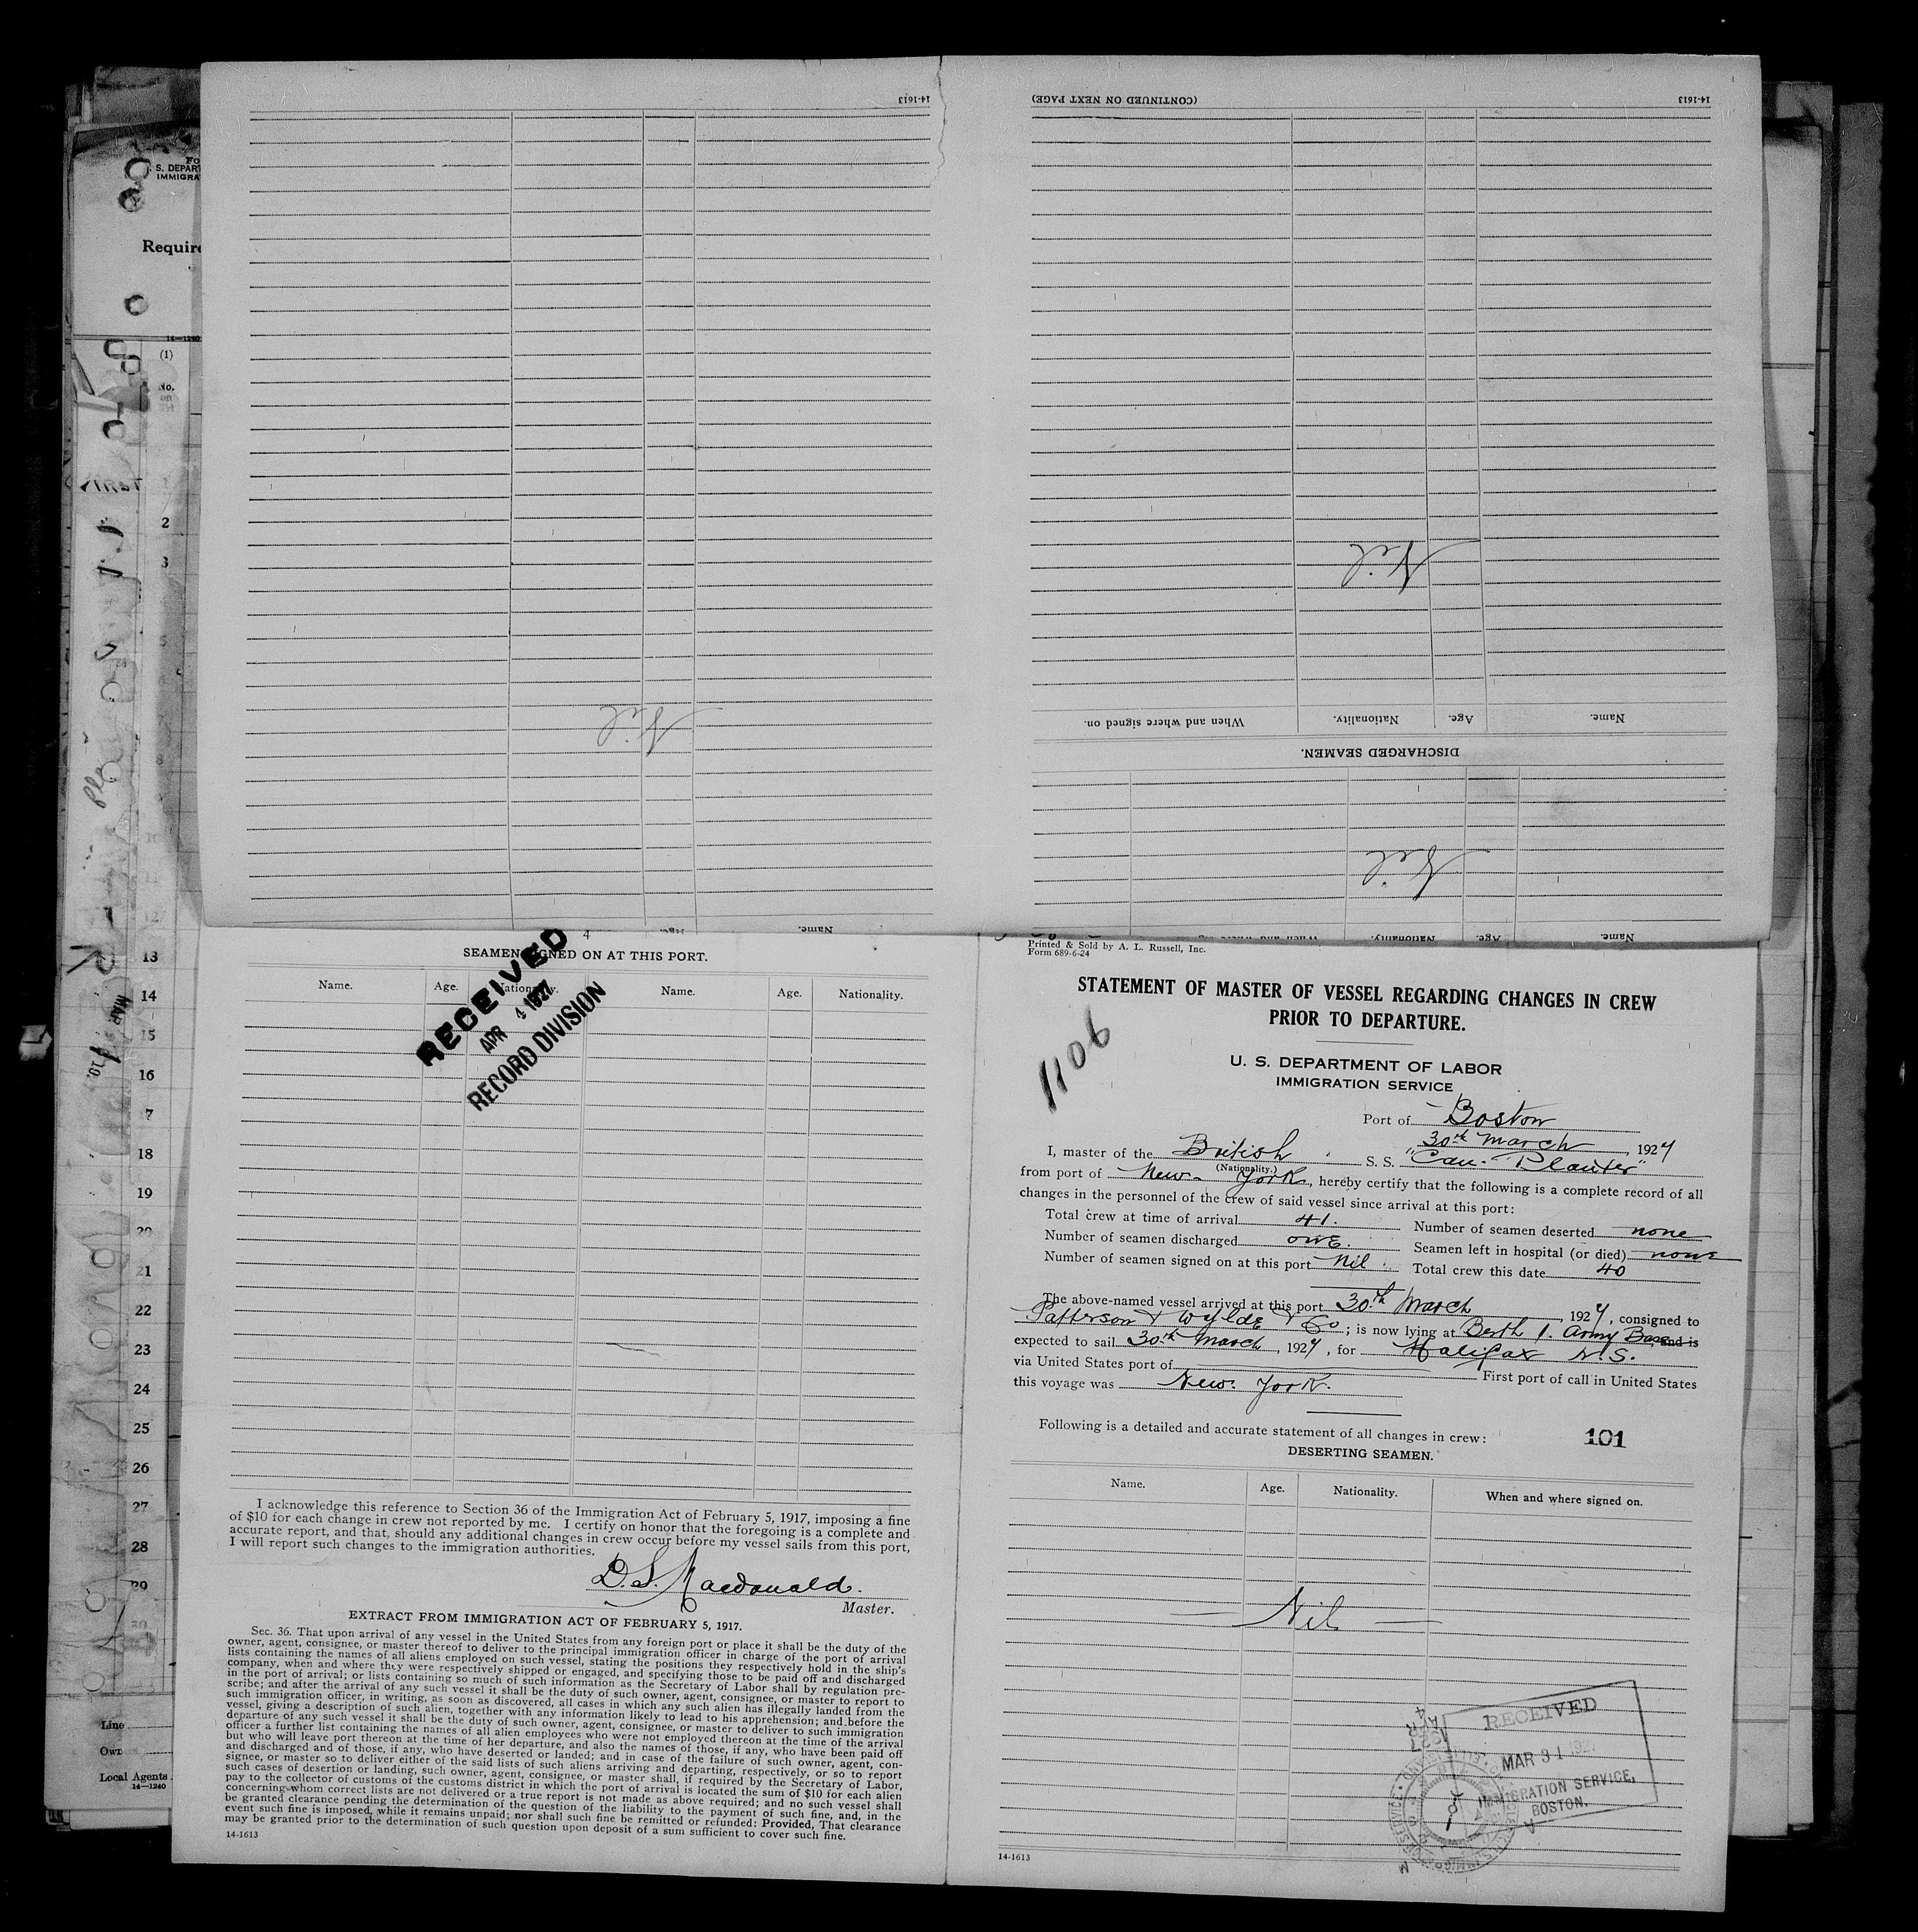 14-1613
(CONTINUED ON NEXT PAGE)
14-1613
Nil
Nil
Name. Age. Nationality. When and where signed on.
DISCHARGED SEAMEN.
Nil
Name. Age.
Name. Age. Nationality. When and where signed on
S. DEPAR
IMMIGRA
Require
14-1240
(1)
No.
on
2
3
12
13
14
15
16
7
18
19
20
21
22
23
24
25
26
27
28
29
30
Line
Own
Local Agents
14-1240
4
SEAMEN SIGNED ON AT THIS PORT.
Name. Age. Nationality. Name. Age. Nationality.
RECEIVED
APR 4 1927
RECORD DIVISION
I acknowledge this reference to Section 36 of the Immigration Act of February 5, 1917, imposing a fine
of $10 for each change in crew not reported by me. I certify on honor that the foregoing is a complete and
accurate report, and that, should any additional changes in crew occur before my vessel sails from this port,
I will report such changes to the immigration authorities.
D. S. Macdonald.
Master.
EXTRACT FROM IMMIGRATION ACT OF FEBRUARY 5, 1917.
Sec. 36. That upon arrival of any vessel in the United States from any foreign port or place it shall be the duty of the
owner, agent, consignee, or master thereof to deliver to the principal immigration officer in charge of the port of arrival
lists containing the names of all aliens employed on such vessel, stating the positions they respectively hold in the ship's
company, when and where they were respectively shipped or engaged, and specifying those to be paid off and discharged
in the port of arrival; or lists containing so much of such information as the Secretary of Labor shall by regulation pre-
scribe; and after the arrival of any such vessel it shall be the duty of such owner, agent, consignee, or master to report to
such immigration officer, in writing, as soon as discovered, all cases in which any such alien has illegally landed from the
vessel, giving a description of such alien, together with any information likely to lead to his apprehension; and before the
departure of any such vessel it shall be the duty of such owner, agent, consignee, or master to deliver to such immigration
officer a further list containing the names of all alien employees who were not employed thereon at the time of the arrival
but who will leave port thereon at the time of her departure, and also the names of those, if any, who have been paid off
and discharged and of those, if any, who have deserted or landed; and in case of the failure of such owner, agent, con-
signee, or master so to deliver either of the said lists of such aliens arriving and departing, respectively, or so to report
such cases of desertion or landing, such owner, agent, consignee, or master shall, if required by the Secretary of Labor,
pay to the collector of customs of the customs district in which the port of arrival is located the sum of $10 for each alien
concerning whom correct lists are not delivered or a true report is not made as above required; and no such vessel shall
be granted clearance pending the determination of the question of the liability to the payment of such fine, and, in the
event such fine is imposed, while it remains unpaid; nor shall such fine be remitted or refunded: Provided, That clearance
may be granted prior to the determination of such question upon deposit of a sum sufficient to cover such fine.
14-1613
Printed & Sold by A. L. Russell, Inc.
Form 689-6-24
STATEMENT OF MASTER OF VESSEL REGARDING CHANGES IN CREW
PRIOR TO DEPARTURE.
1106
U. S. DEPARTMENT OF LABOR
IMMIGRATION SERVICE
Port of Boston
30th March, 1927
I, master of the British S. S. "Can. Planter"
(Nationality.)
from port of New York, hereby certify that the following is a complete record of all
changes in the personnel of the crew of said vessel since arrival at this port:
Total crew at time of arrival 41. Number of seamen deserted none
Number of seamen discharged one. Seamen left in hospital (or died) none
Number of seamen signed on at this port Nil. Total crew this date 40
The above-named vessel arrived at this port 30th March, 1927, consigned to
Patterson & Wylde & Co; is now lying at Berth 1. Army Base, and is
expected to sail 30th March, 1927, for Halifax N.S.
via United States port of First port of call in United States
this voyage was New York.
Following is a detailed and accurate statement of all changes in crew: 101
DESERTING SEAMEN.
Name. Age. Nationality. When and where signed on.
Nil
RECEIVED
MAR 31 1927
IMMIGRATION SERVICE,
BOSTON.
14-1613